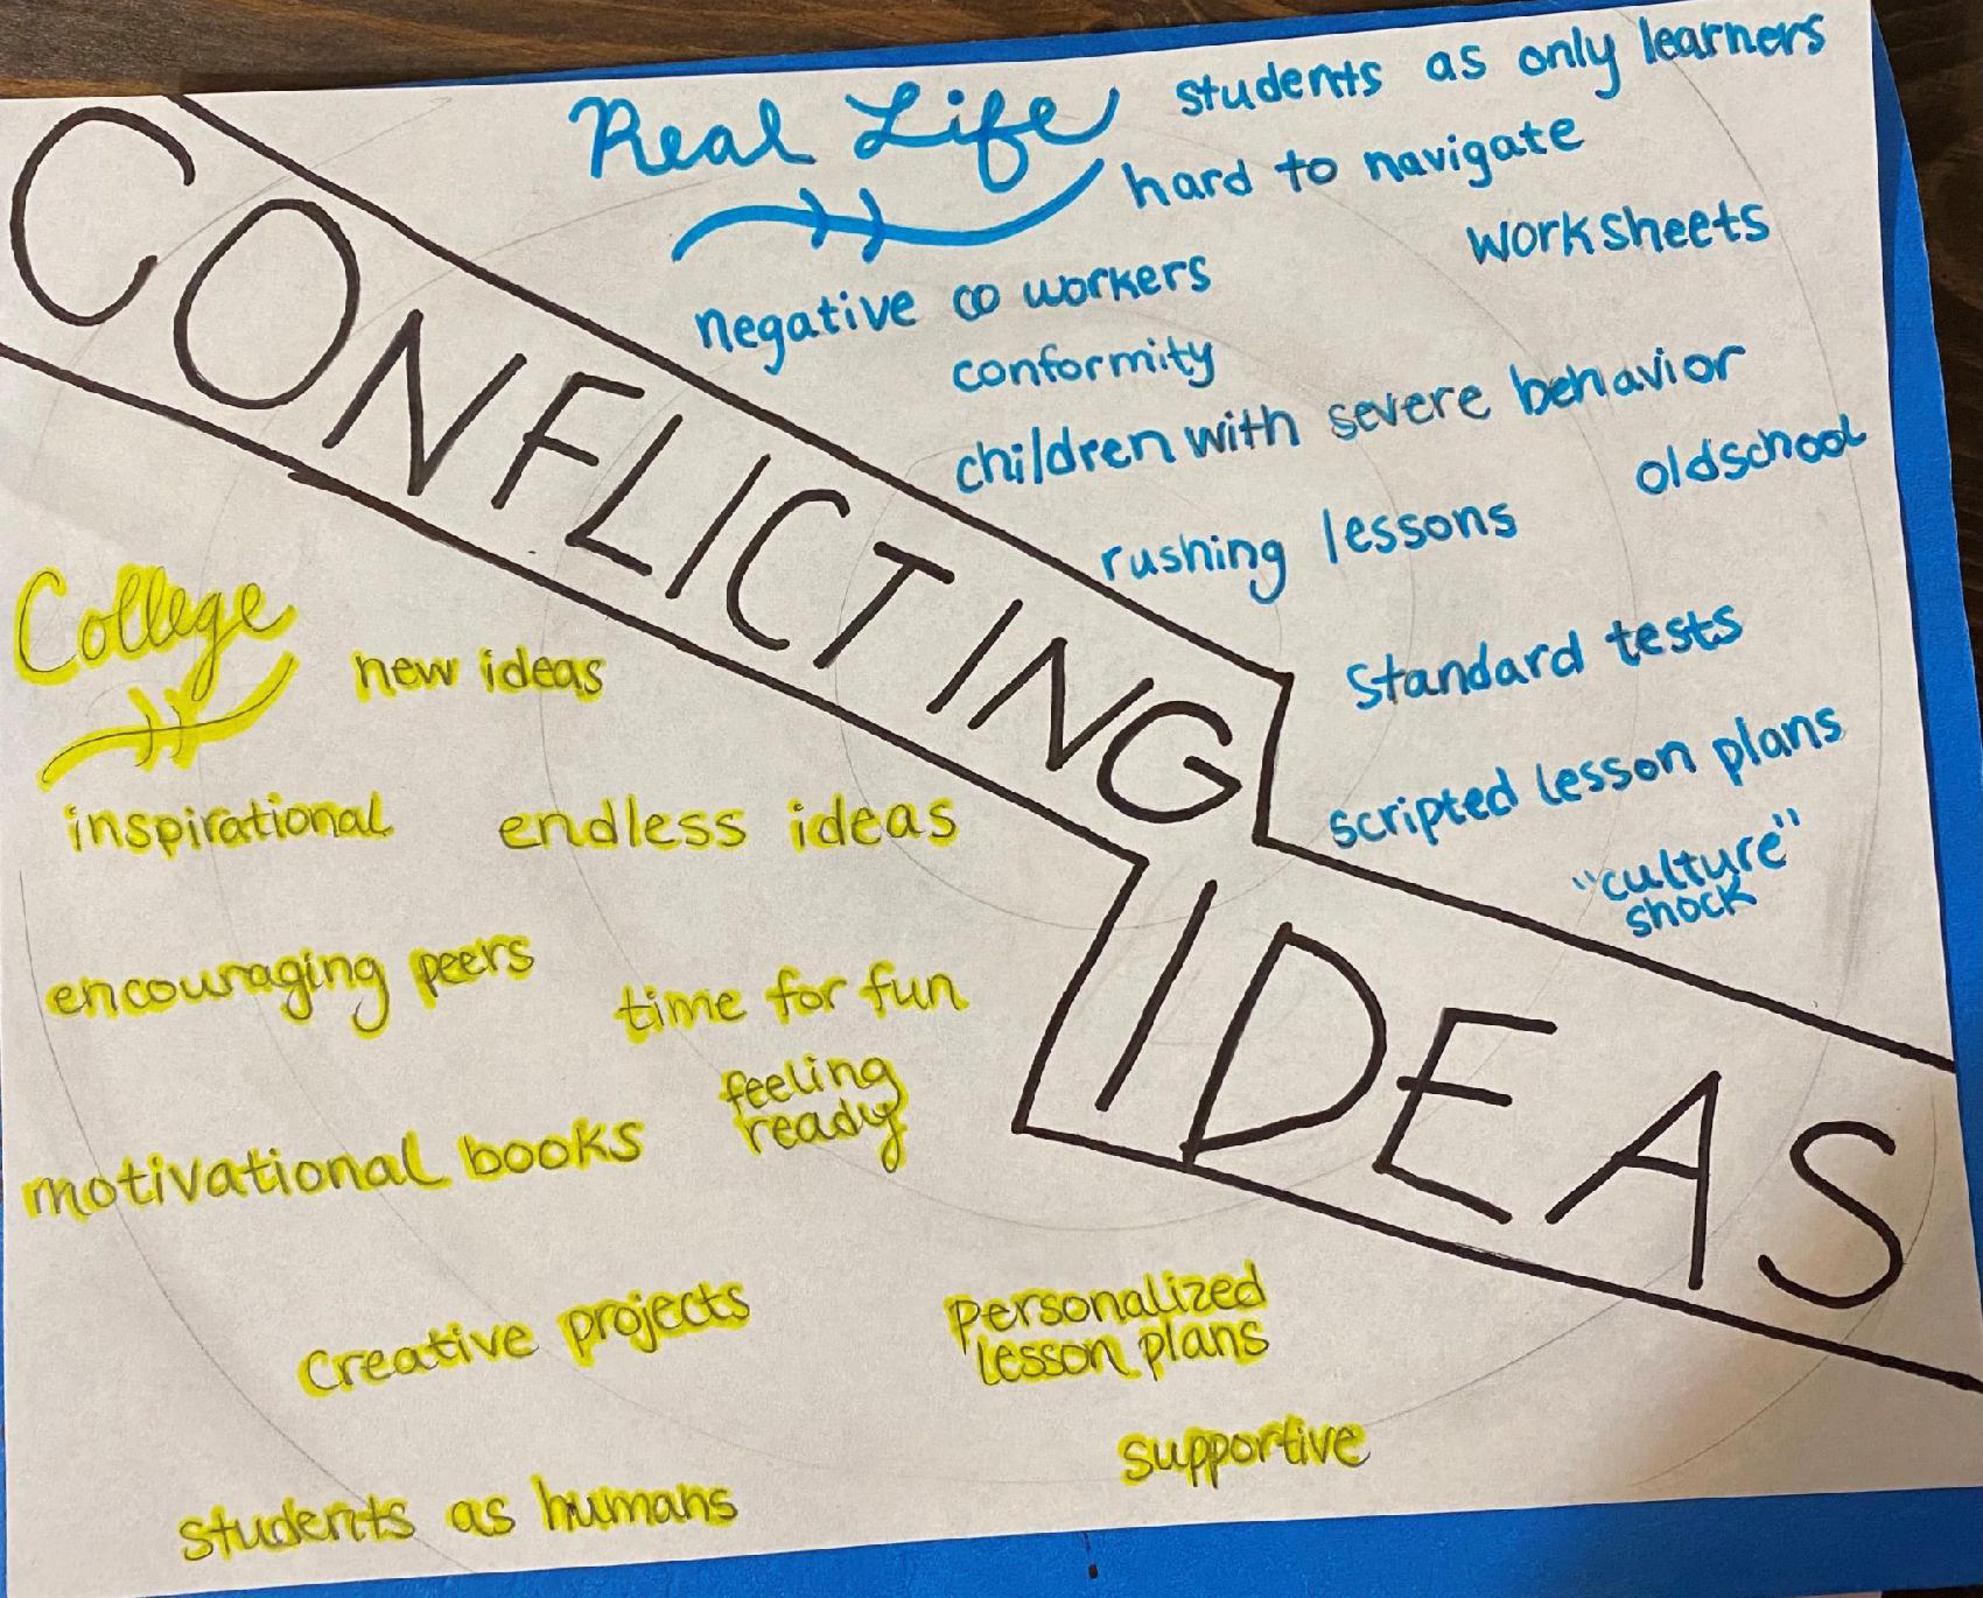 CONFLICTING
IDEAS
Real Life
students as only learners
hard to navigate
worksheets
negative co workers
conformity
children with severe behavior
oldschool
rushing lessons
Standard tests
scripted lesson plans
"culture"
shock
College
new ideas
inspirational
endless ideas
encouraging peers
time for fun
feeling
ready
motivational books
Creative projects
Personalized
lesson plans
supportive
students as humans